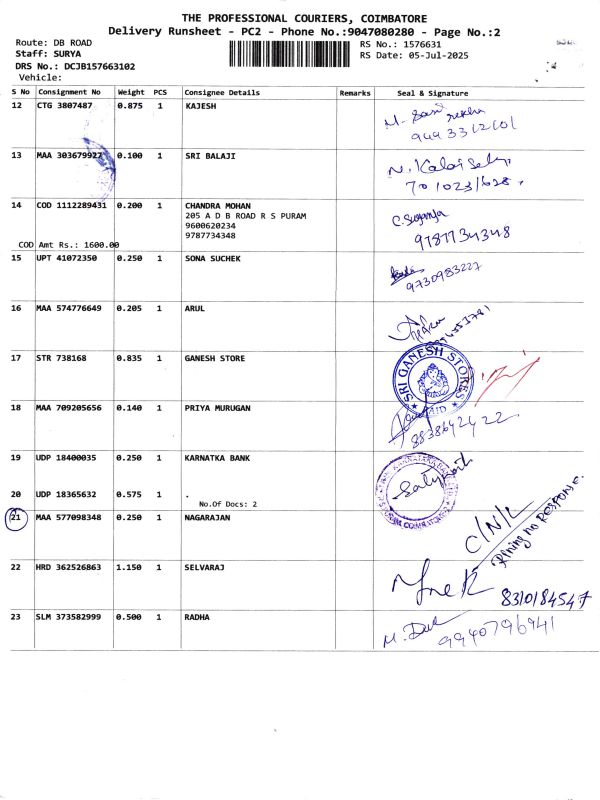 THE PROFESSIONAL COURIERS, COIMBATORE
Delivery Runsheet - PC2 - Phone No.:9047080280 - Page No.:2
Route: DB ROAD
Staff: SURYA
DRS No.: DCJB157663102
Vehicle:
RS No.: 1576631
RS Date: 05-Jul-2025
S No Consignment No Weight PCS Consignee Details Remarks Seal & Signature
12 CTG 3807487 0.875 1 KAJESH
13 MAA 303679927 0.100 1 SRI BALAJI
N. Kalai Selvi
14 COD 1112289431 0.200 1 CHANDRA MOHAN
205 A D B ROAD R S PURAM
9600620234
9787734348
COD Amt Rs.: 1600.00
C. Suganya
9787734348
15 UPT 41072350 0.250 1 SONA SUCHEK
9730983227
16 MAA 574776649 0.205 1 ARUL
17 STR 738168 0.835 1 GANESH STORE
SRI GANESH STORES
18 MAA 709205656 0.140 1 PRIYA MURUGAN
8838642422
19 UDP 18400035 0.250 1 KARNATKA BANK
20 UDP 18365632 0.575 1 .
No.Of Docs: 2
21 MAA 577098348 0.250 1 NAGARAJAN
C/N/L
Rining no RESPONSE.
22 HRD 362526863 1.150 1 SELVARAJ
8310184547
23 SLM 373582999 0.500 1 RADHA
9940796941